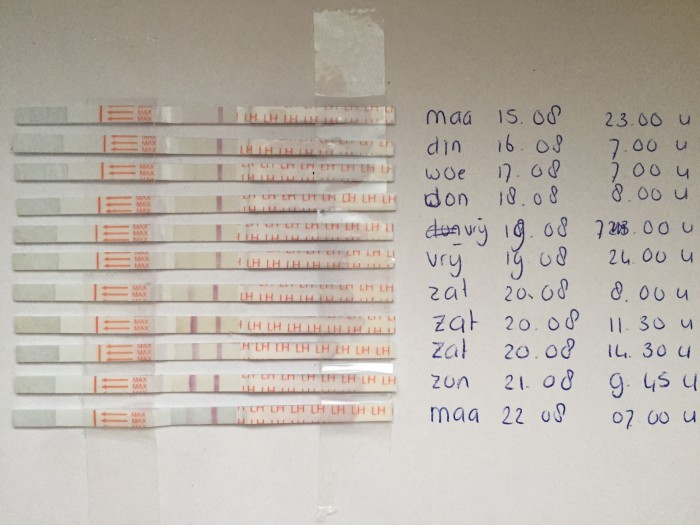 MAX MAX MAX LH LH LH LH LH LH maa 15.08 23.00 u
MAX MAX LH LH LH LH LH LH din 16.08 7.00 u
MAX MAX LH LH LH LH LH LH woe 17.08 7.00 u
MAX MAX LH LH LH LH LH LH don 18.08 8.00 u
MAX MAX LH LH LH LH LH LH vrij 19.08 .00 u
MAX MAX LH LH LH LH LH LH vrij 19 08 24.00 u
MAX MAX LH LH LH LH LH LH zat 20.08 8.00 u
MAX MAX LH LH LH LH LH LH zat 20.08 11.30 u
MAX MAX LH LH LH LH LH LH zat 20.08 14.30 u
MAX MAX LH LH LH LH LH LH zon 21.08 9.45 u
MAX MAX LH LH LH LH LH LH maa 22 08 07.00 u